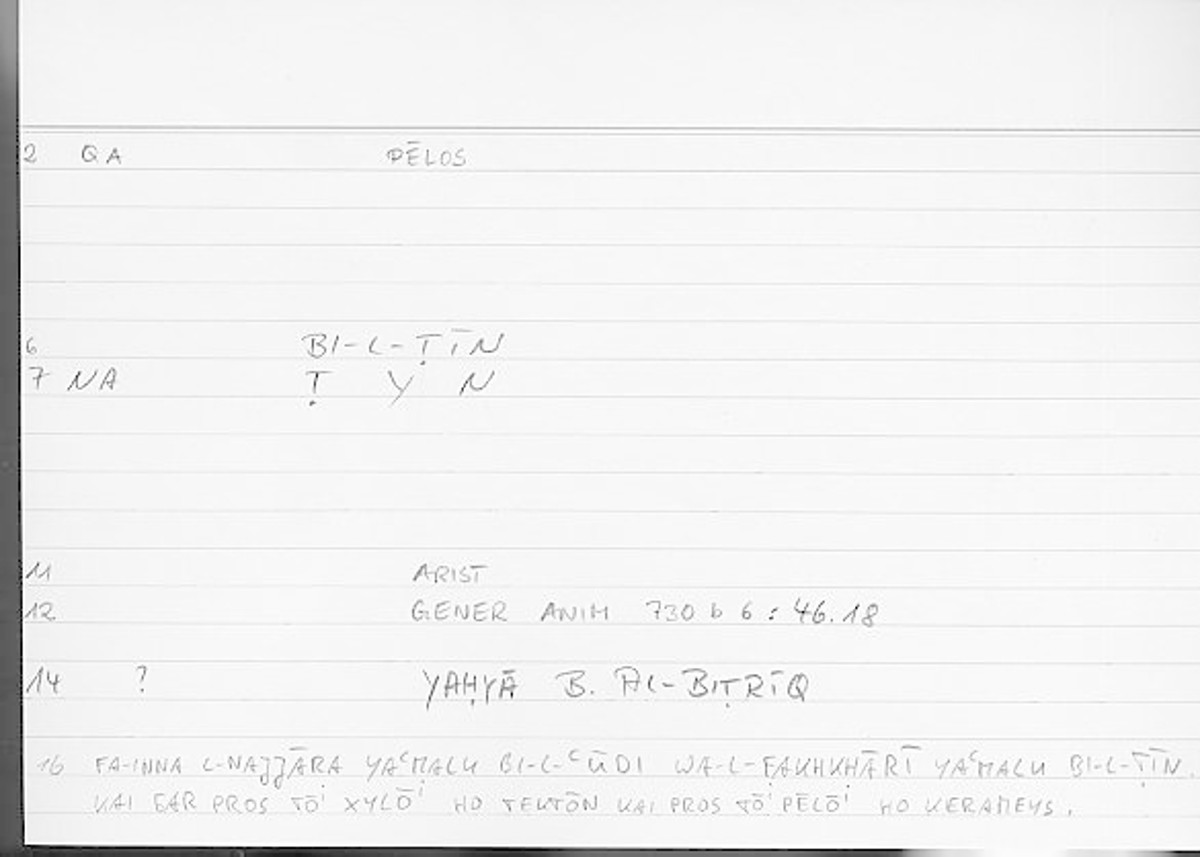 2 QA PĒLOS
6 BI-L-ṬĪN
7 NA Ṭ Y N
11 ARIST
12 GENER ANIM 730 b 6 : 46.18
14 ? YAḤYĀ B. AL-BIṬRĪQ
16 FA-INNA L-NAJJĀRA YAʿMALU BI-L-ʿŪDI WA-L-FAKHKHĀRĪ YAʿMALU BI-L-ṬĪN.
KAI GAR PROS TŌⁱ XYLŌⁱ HO TEKTŌN KAI PROS TŌⁱ PĒLŌⁱ HO KERAMEYS.